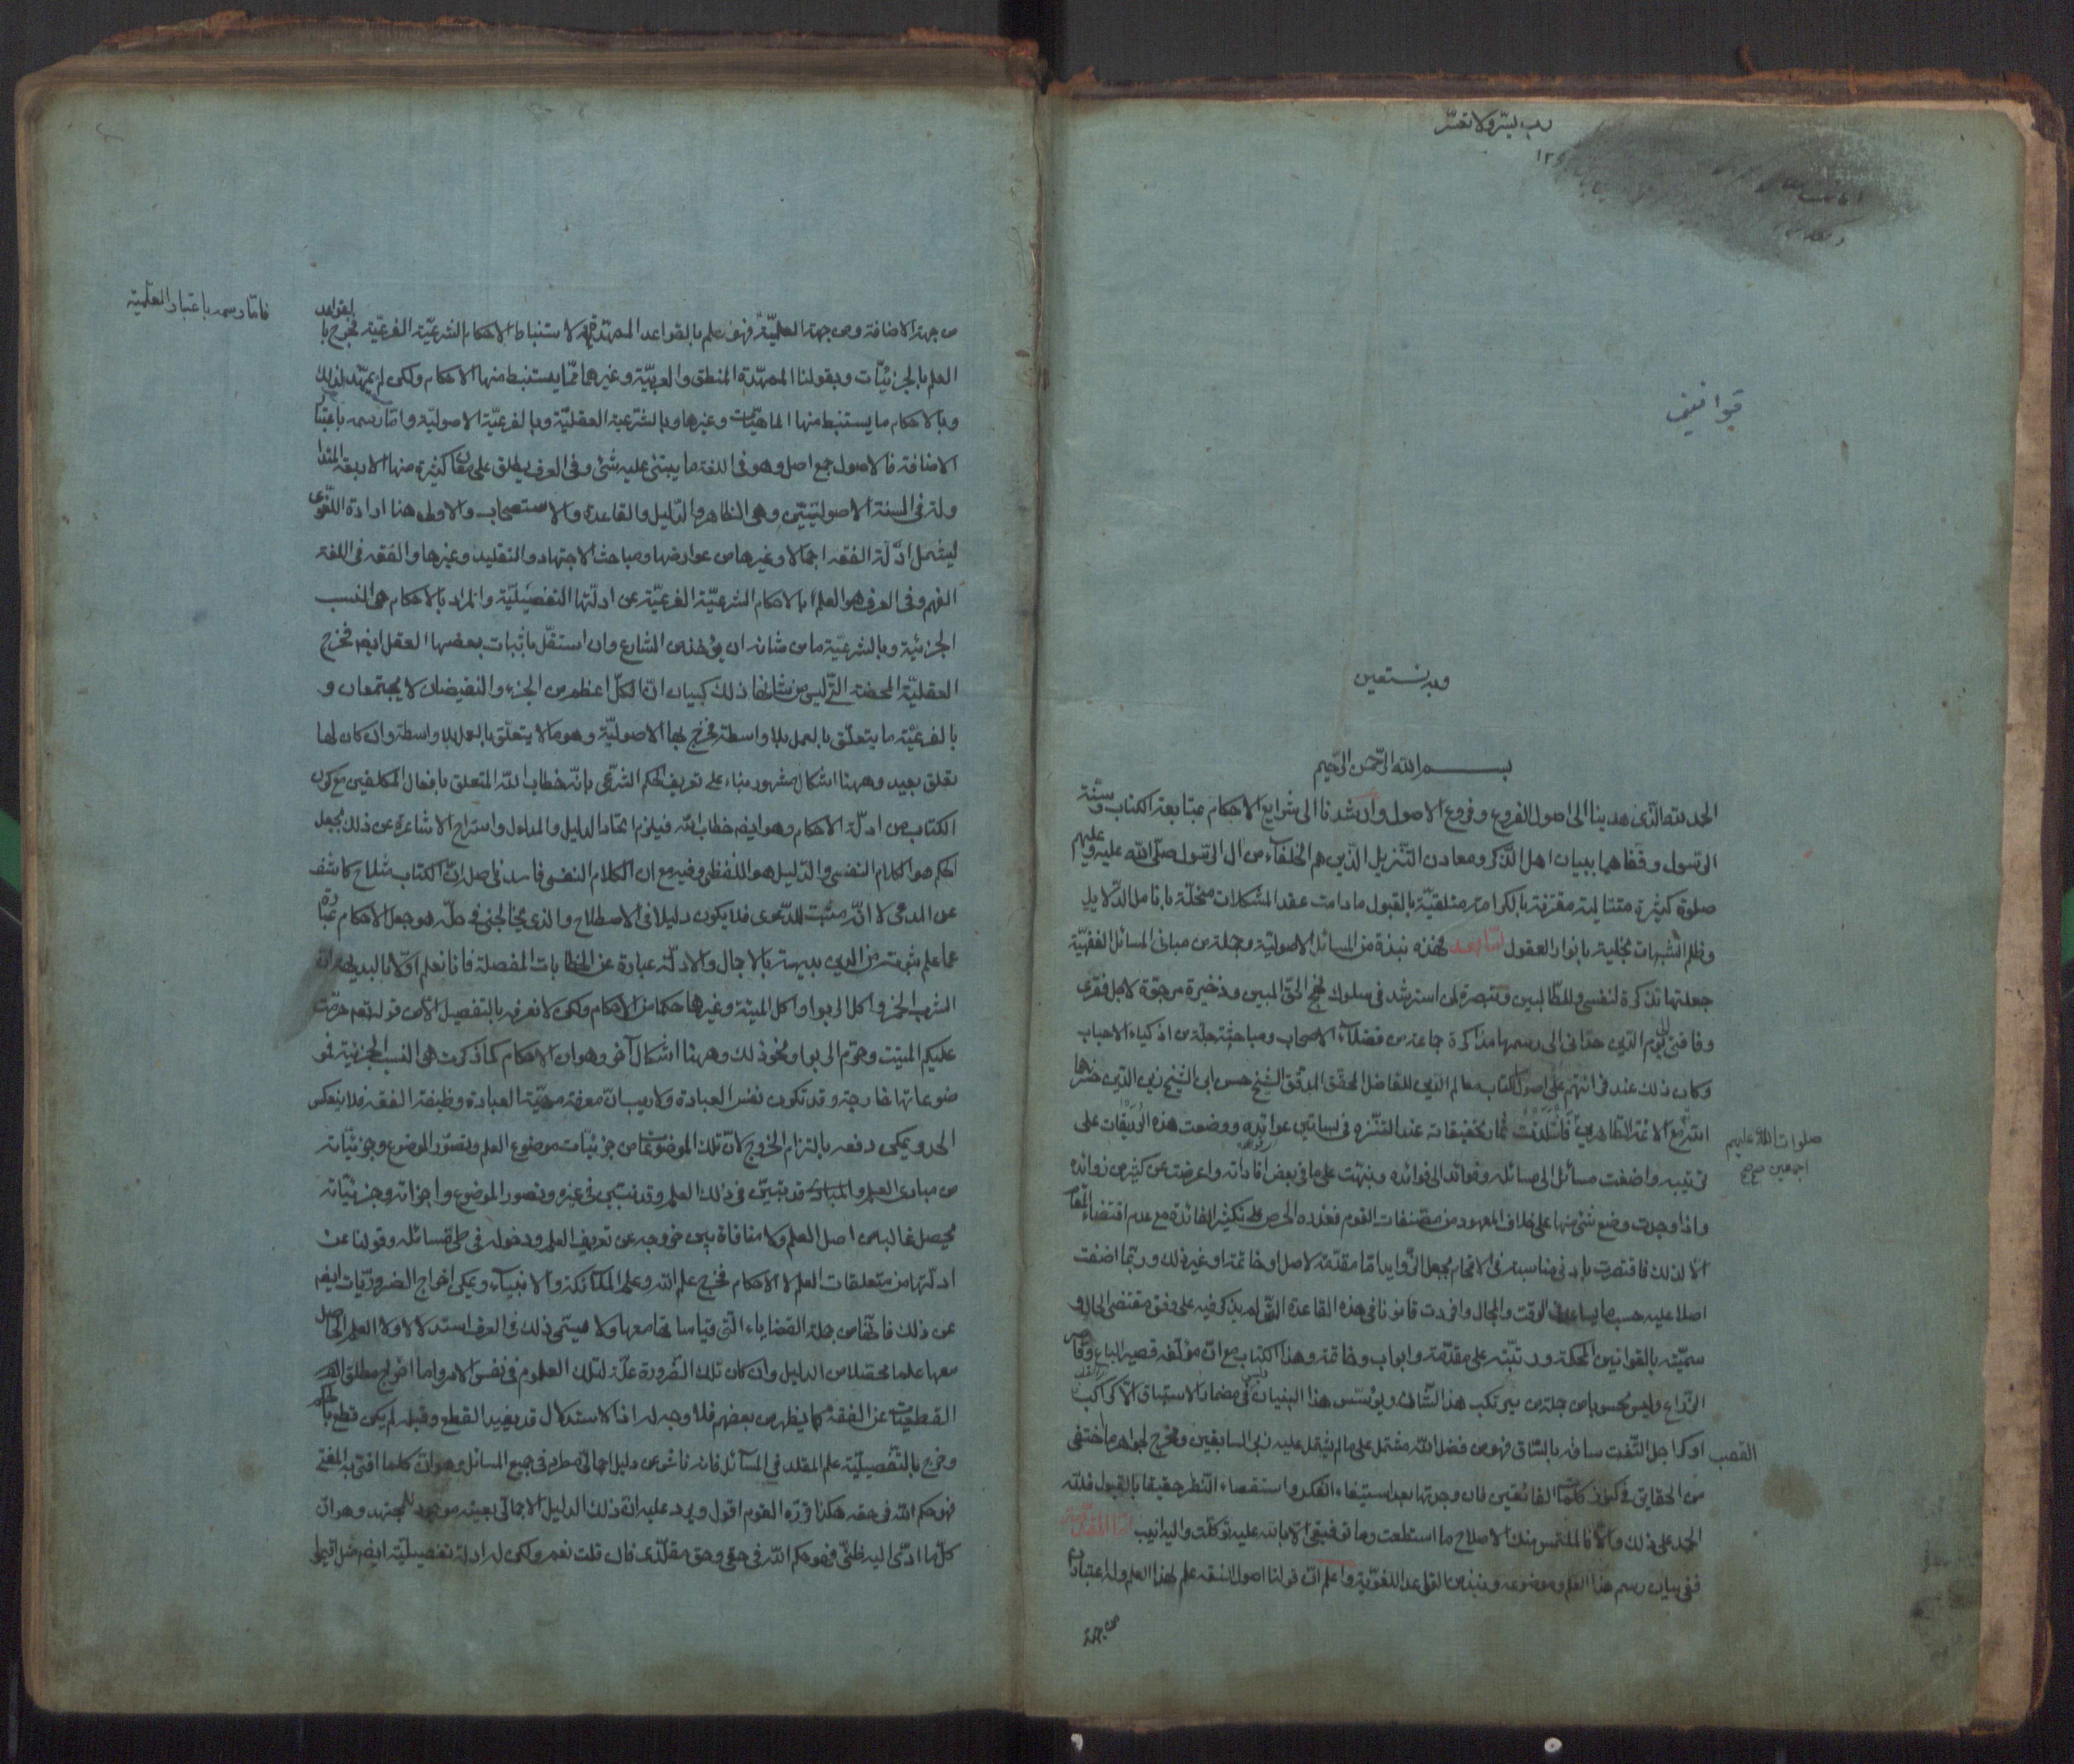 رب یسّر ولا تعسّر
قوانین
وبه نستعین
بسم الله الرّحمن الرّحیم
الحمد لله الّذی هدینا الی اصول الفروع وفروع الاصول وارشدنا الی شرایع الاحکام بمتابعة الکتاب وسنّة
الرّسول وقفّاهما ببیان اهل الذّکر ومعادن التّنزیل الّذین هم الخلفاء من آل الرّسول صلّی الله علیه وعلیهم
صلوة کثیرة متتالیة مقترنة بالکرامة متلقیّة بالقبول مادامت عقد المشکلات منحلّة بانامل الدّلایل
وظلم الشبهات منجلیة بانوار العقول امّا بعد فهذه نبذة من المسائل الاصولیّة وجملة من مبانی المسائل الفقهیّة
جعلتها تذکرة لنفسی وللطّالبین وتبصرة لمن استرشد فی سلوک نهج الحقّ المبین وذخیرة مرجوّة لاجل فقری
وفاقتی لیوم الدّین حدانی الی رسمها مذاکرة جماعة من فضلاء الاصحاب ومباحثة جملة من اذکیاء الاحباب
وکان ذلک عند قرائتهم علیّ اصول کتاب معالم الدّین للفاضل المحقّق المدقّق الشیخ حسن ابن الشیخ زین الدّین حشرهما
الله مع الائمّة الطّاهرین فاستلذذت ثمار تحقیقاته عند التنزّه فی بساتین عوائده ووضعت هذه الوریقات علی
صلوات الله علیهم
اجمعین صح
ترتیبه واضفت مسائل الی مسائله وفوائد الی فوائده ونبّهت علی ما فی بعض افاداته واعرضت عن کثیر من زوائده
واذا وجدت وضع شئ منها علی خلاف المعهود من مصنفات القوم فعذره الحرص علی تکثیر الفائدة مع عدم اقتضاء المقام
الّا لذلک فاقتصرت بادنی مناسبة فی الاقحام بجعل الزّواید امّا مقدّمة لاصل او خاتمة او غیر ذلک وربّما اضفت
اصلا علیه حسب ما یساعدنی الوقت والمجال وافردت قانونا فی هذه القاعدة الّتی لم یذکر فیه علی وفق مقتضی الحال و
سمیّته بالقوانین المحکمة ورتّبته علی مقدّمة وابواب وخاتمة وهذا الکتاب مع انّ مؤلّفه قصیر الباع وقاصر
الذّراع ولیس محسوبا من جملة من یرتکب هذا الشّان ویؤسّس هذا البنیان ولیس فی مضمار الاستباق الّا کراکب
القصب او کراجل التّفت ساقه بالسّاق فهو من فضل الله مشتمل علی ما لم یشتمل علیه زبر السابقین ومخرج لجواهر ما اختفی
من الحقایق فی کنوز کلمات الفائقین فان وجدتها بعد استیفاء الفکر واستقصاء النّظر حقیقا بالقبول فللّه
الحمد علی ذلک والّا فالملتمس منک الاصلاح ما استطعت وما توفیقی الّا بالله علیه توکّلت والیه انیب امّا المقدّمة
ففی بیان رسم هذا العلم وموضوعه ونبذ من القواعد اللغویّة واعلم انّ قولنا اصول الفقه علم لهذا العلم وله اعتباران
من جهة
من جهة الاضافة ومن جهة العلمیّة فهو علم بالقواعد الممهّدة لاستنباط الاحکام الشرعیّة الفرعیّة فخرج بالقواعد
فامّا رسمه باعتبار العلمیّة
العلم بالجزئیّات وبقولنا الممهّدة المنطق والعربیّة وغیرهما ممّا یستنبط منها الاحکام ولکن لم یمهّد لذلک
وبالاحکام ما یستنبط منها الماهیّات وغیرها وبالشّرعیة العقلیّة وبالفرعیّة الاصولیّة وامّا رسمه باعتبار
الاضافة فالاصول جمع اصل وهو فی اللغة ما یبتنی علیه شئ وفی العرف یطلق علی معان کثیرة منها الاربعة المتدا
ولة فی السنة الاصولیّین وهی الظاهر والدّلیل والقاعدة والاستصحاب والاولی هنا ارادة اللّغوی
لیشمل ادلّة الفقه اجمالا وغیرها من عوارضها ومباحث الاجتهاد والتقلید وغیرها والفقه فی اللغة
الفهم وفی العرف هو العلم بالاحکام الشرعیّة الفرعیّة عن ادلّتها التفصیلیّة والمراد بالاحکام هی النسب
الجزئیة وبالشرعیّة ما من شانه ان یؤخذ من الشارع وان استقلّ باثبات بعضها العقل ایضا فخرج
العقلیّة المحضة الّتی لیس من شانها ذلک کبیان انّ الکلّ اعظم من الجزء والنقیضان لا یجتمعان و
بالفرعیّة ما یتعلّق بالعمل بلا واسطة فخرج بها الاصولیّة وهو ما لا یتعلّق بالعمل بلا واسطة وان کان لها
تعلق بعید وههنا اشکال مشهور بناء علی تعریف الحکم الشرعی بانّه خطاب الله المتعلق بافعال المکلفین مع کون
الکتاب من ادلّة الاحکام وهو ایضا خطاب الله فیلزم اتحاد الدلیل والمدلول واستراح الاشاعرة عن ذلک بجعل
الحکم هو الکلام النفسی والدّلیل هو اللّفظی وفیه مع ان الکلام النفسی فاسد فی اصله انّ الکتاب مثلا ح کاشف
عن المدعی لا انّه مثبت للدّعوی فلا یکون دلیلا فی الاصطلاح والذی یخالجنی فی حلّه هو جعل الاحکام عبارة
عما علم ثبوته من الدین بدیهة بالاجمال والادلّة عبارة عن الخطابات المفصلة فانا نعلم اوّلا بالبدیهة ان
الشرب الخمر واکل الربوا واکل المیتة وغیرها حکما من الاحکام ولکن لا نعرفه بالتفصیل الّا من قوله تعم حرّمت
علیکم المیتة وحرّم الربوا ونحو ذلک وههنا اشکال آخر وهو ان الاحکام کما ذکرت هی النسب الجزئیة فمو
ضوعاتها خارجة وقد تکون نفس العبادة ولا ریب انّ معرفة مهیّة العبادة وظیفة الفقه فلا ینعکس
الحد ویمکن دفعه بالتزام الخروج لانّ تلک الموضوعات من جزئیّات موضوع العلم وتصوّر الموضوع وجزئیّاته
من مبادی العلم والمبادی قد تتبیّن فی ذلک العلم وقد تتبیّن فی غیره وتصور الموضوع واجزائه وجزئیّاته
یحصل غالبا من اصل العلم ولا منافاة بین خروجه عن تعریف العلم ودخوله فی طیّ مسائله وقولنا عن
ادلّتها من متعلقات العلم لا الاحکام فخرج علم الله وعلم الملائکة والانبیاء ویمکن اخراج الضروریّات ایضا
عن ذلک فانّها من جملة القضایاء الّتی قیاساتها معها ولا یسمّی ذلک فی العرف استدلالا ولا العلم الحاصل
معها علما محصّلا من الدلیل وان کان تلک الضّرورة علّة لتلک العلوم فی نفس الامر واما اخراج مطلق
القطعیّات عن الفقه کما یظهر من بعضهم فلا وجه له اذ الاستدلال قد یفید القطع وقبله لم یکن قطع بالحکم
وخرج بالتّفصیلیّة علم المقلد فی المسائل فانه ناش عن دلیل اجمالیّ مطرد فی جمیع المسائل وهو انّ کلما افتی به المفتی
فهو حکم الله فی حقه هکذا قرّره القوم اقول ویرد علیه انّ ذلک الدلیل الاجمالی بعینه موجود للمجتهد وهو ان
کلّما ادّی الیه ظنّی فهو حکم الله فی حقی وحق مقلّدی فان قلت نعم ولکن له ادلة تفصیلیّة ایضا مثل اقیموا